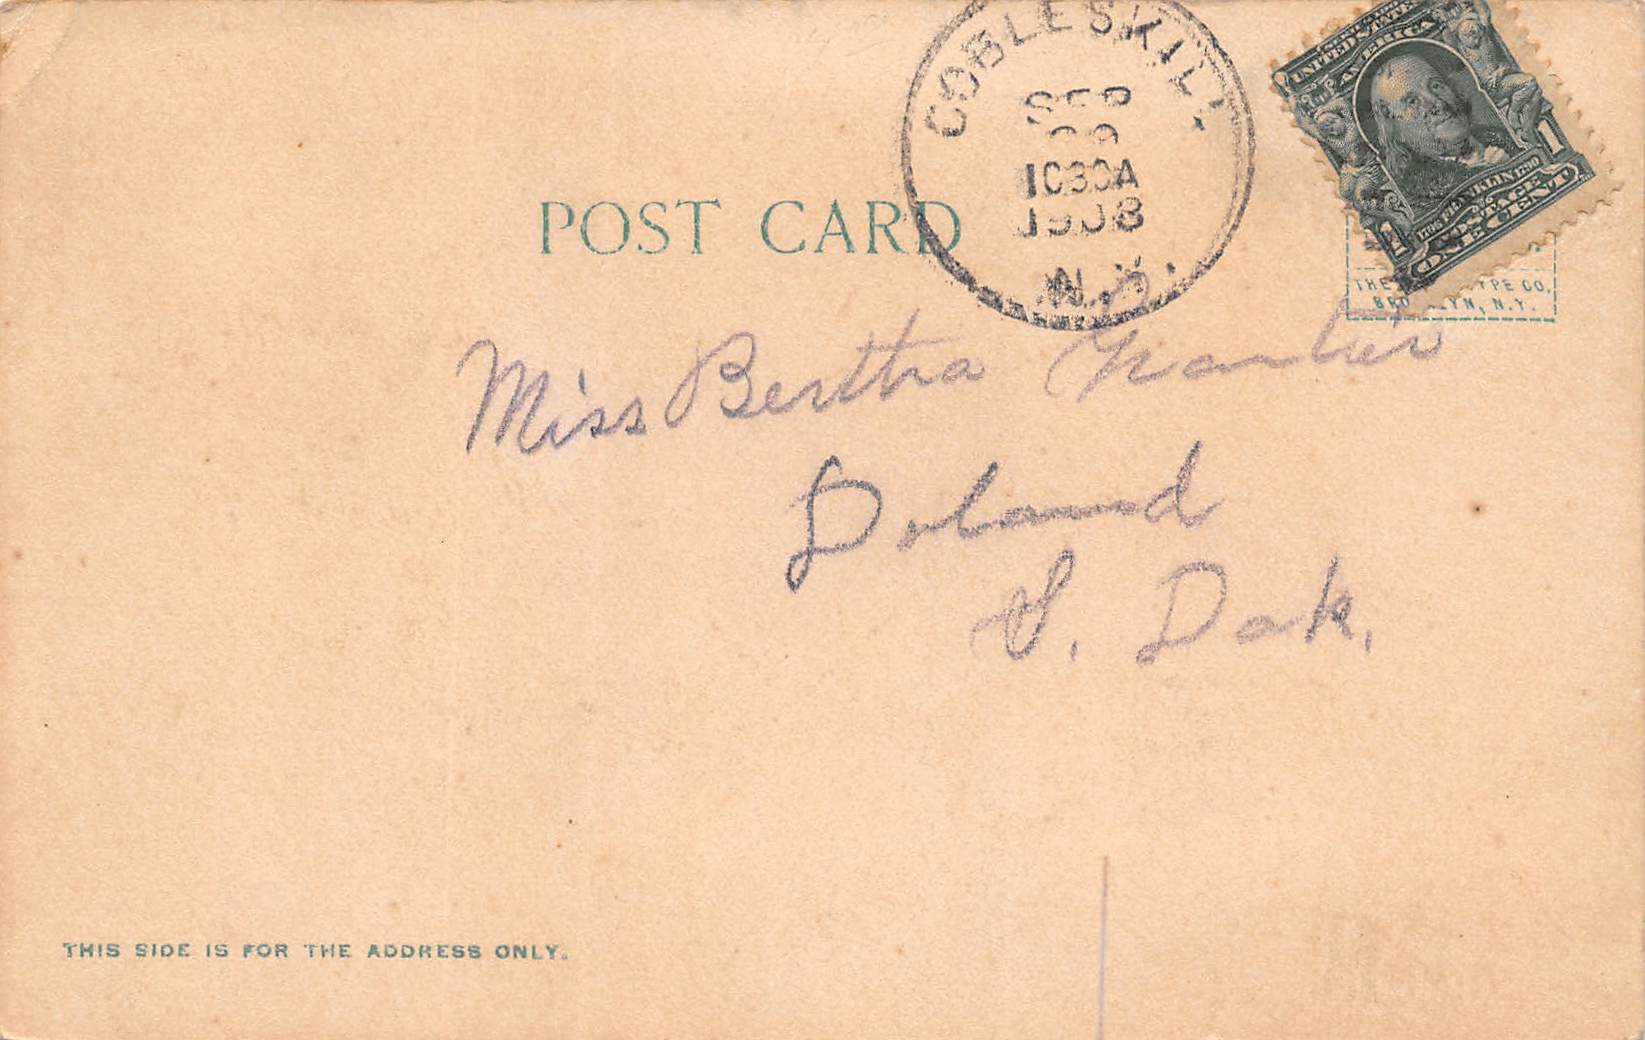 COBLESKILL
SEP
1030A
1908
N.Y.
SERIES 1902
UNITED STATES
OF AMERICA
FRANKLIN 1790
POSTAGE
1 ONE CENT 1
POST CARD
THE TYPE CO.
BROOKLYN, N.Y.
Miss Bertha
Doland
S. Dak.
THIS SIDE IS FOR THE ADDRESS ONLY.